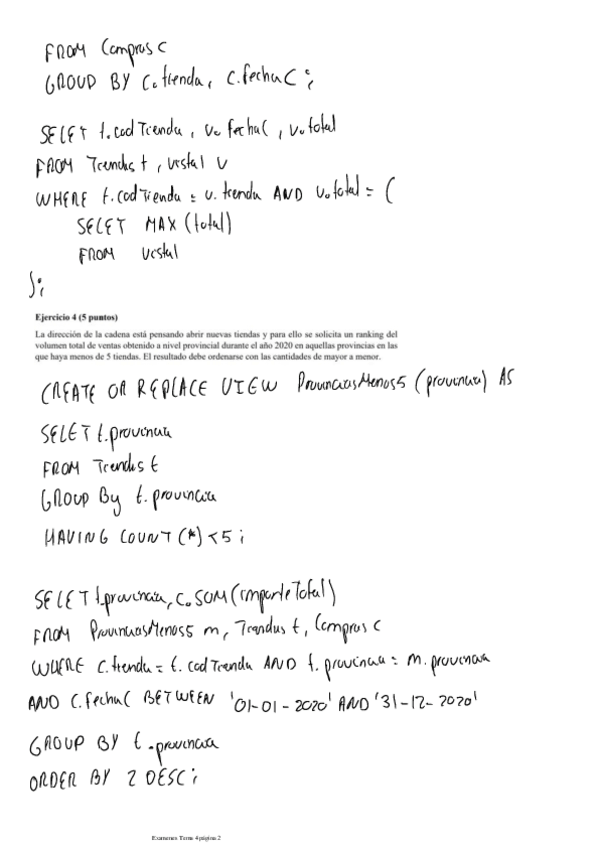 FROM Compras C
GROUP BY C.tienda, C.fechaC;
SELET t.codTienda, v.fechaC, v.total
FROM Tiendas t, vistal v
WHERE t.codTienda = v.tienda AND v.total = (
SELET MAX(total)
FROM vistal
);
Ejercicio 4 (5 puntos)
La dirección de la cadena está pensando abrir nuevas tiendas y para ello se solicita un ranking del
volumen total de ventas obtenido a nivel provincial durante el año 2020 en aquellas provincias en las
que haya menos de 5 tiendas. El resultado debe ordenarse con las cantidades de mayor a menor.
CREATE OR REPLACE VIEW ProvinciasMenos5 (provincia) AS
SELET t.provincia
FROM Tiendas t
GROUP By t.provincia
HAVING COUNT(*) <5;
SELET t.provincia, C.SUM(importeTotal)
FROM ProvinciasMenos5 m, Tiendas t, Compras C
WHERE C.tienda = t.codTienda AND t.provincia = m.provincia
AND C.fechaC BETWEEN '01-01-2020' AND '31-12-2020'
GROUP BY t.provincia
ORDER BY 2 DESC;
Examenes Tema 4 página 2